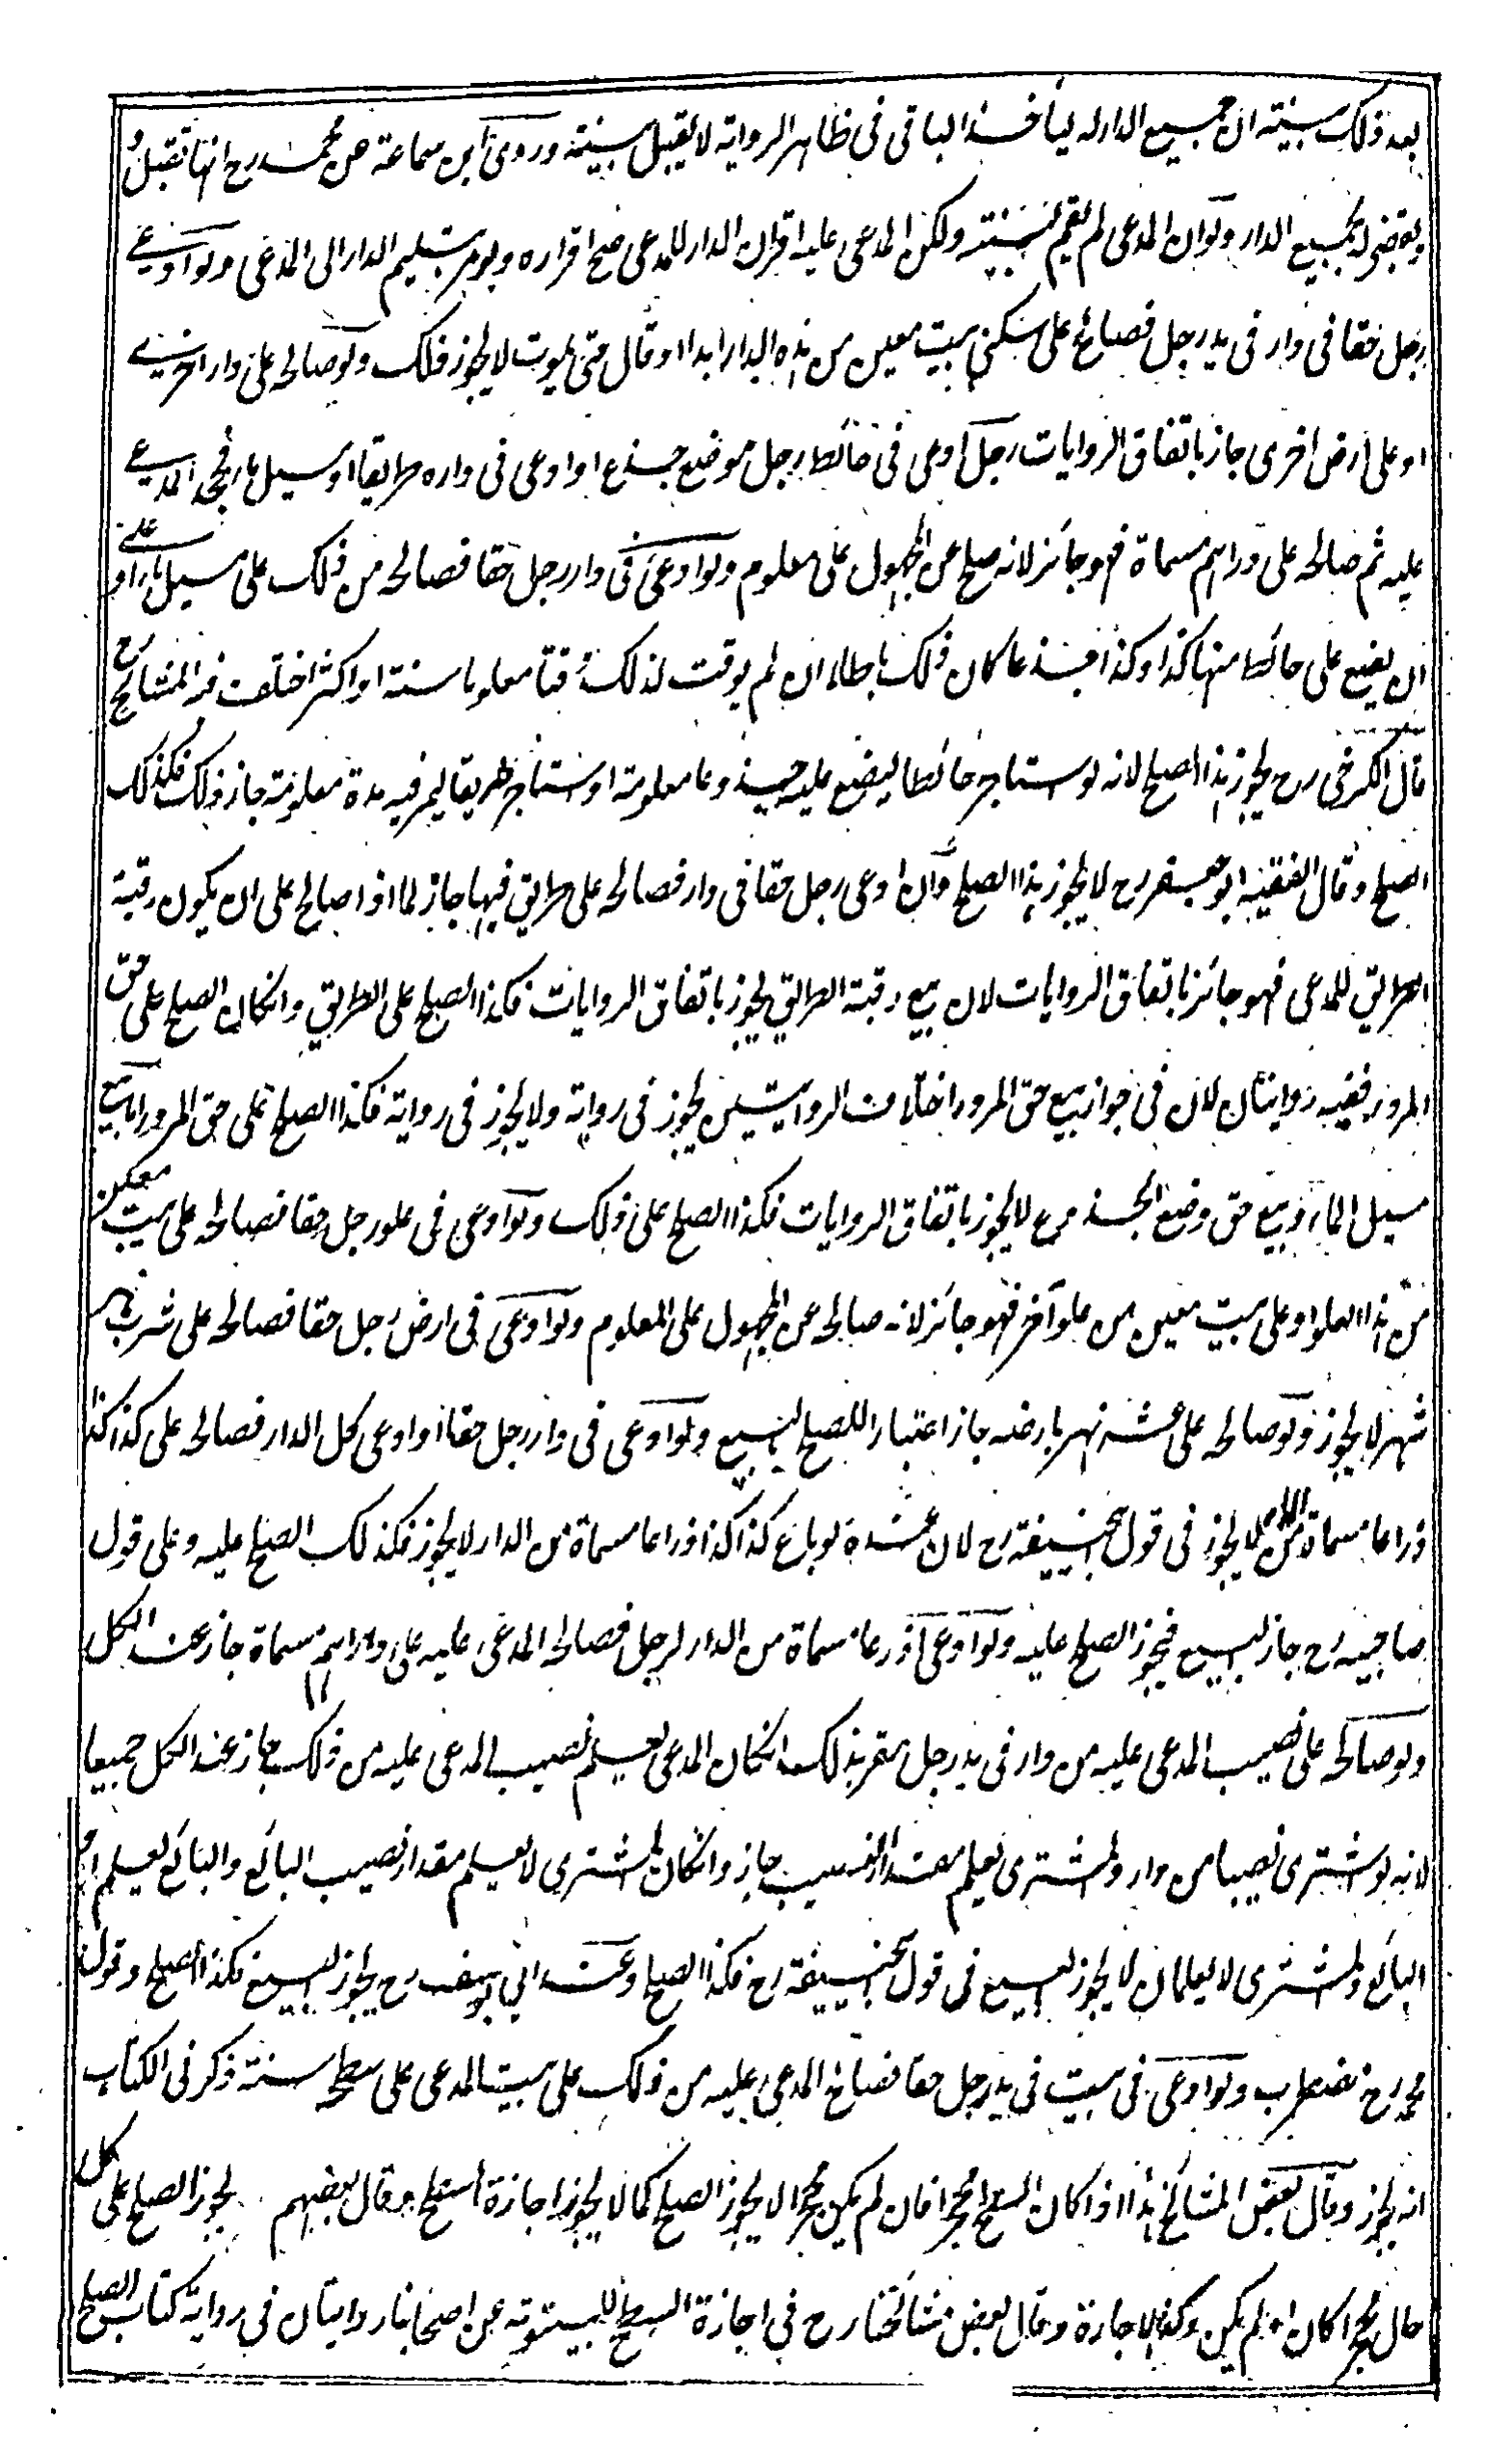 بعد ذلك بينة ان جميع الدار له ليأخذ الباقى فى ظاهر الرواية لا يقبل بينته وروى ابن سماعة عن محمد رح انها تقبل و
يقضى له بجميع الدار ولو ان المدعى لم يقم البينة ولكن المدعى عليه اقر ان الدار للمدعى صح اقراره ويومر بتسليم الدار الى المدعى ولو ادعى
رجل حقا فى دار فى يد رجل فصالح على سكنى بيت معين من هذه الدار ابدا او قال حتى يموت لا يجوز ذلك ولو صالحه على دار اخرى
او على ارض اخرى جاز باتفاق الروايات رجل ادعى فى حائط رجل موضع جذع او ادعى فى داره طريقا او مسيل ماء فجحد المدعى
عليه ثم صالحه على دراهم مسماة فهو جائز لانه صلح عن المجهول على معلوم ولو ادعى فى دار رجل حقا فصالحه من ذلك على مسيل ماء او على
ان يضع على حائط منها كذا وكذا جذعا كان ذلك باطلا ان لم يوقت لذلك وقتا معلوما سنة او اكثر اختلف فيه المشائخ رح
قال الكرخى رح يجوز هذا الصلح لانه لو استاجر حائطا ليضع عليه جذوعا معلومة او استاجر طريقا ليمر فيه مدة معلومة جاز ذلك فكذلك
الصلح وقال الفقيه ابو جعفر رح لا يجوز هذا الصلح وان ادعى رجل حقا فى دار فصالحه على طريق فيها جاز لما اذا صالح على ان يكون رقبة
الطريق للمدعى فهو جائز باتفاق الروايات لان بيع رقبة الطريق يجوز باتفاق الروايات فكذا الصلح على الطريق وانكان الصلح على حق
المرور ففيه روايتان لان فى جواز بيع حق المرور اختلاف الروايتين يجوز فى رواية ولا يجوز فى رواية فكذا الصلح على حق المرور اما بيع
مسيل الماء وبيع حق وضع الجذوع لا يجوز باتفاق الروايات فكذا الصلح على ذلك ولو ادعى فى علو رجل حقا فصالحه على بيت معين
من هذا العلو او على بيت معين من علو آخر فهو جائز لانه صالحه عن المجهول على المعلوم ولو ادعى فى ارض رجل حقا فصالحه على شرب
شهر لا يجوز ولو صالحه على عشر نهر بارضه جاز اعتبارا للصلح بالبيع ولو ادعى فى دار رجل حقا او ادعى كل الدار فصالحه على كذا كذا
ذراعا مسماة من الدار لا يجوز فى قول ابيحنيفة رح لان عنده لو باع كذا كذا ذراعا مسماة من الدار لا يجوز فكذلك الصلح عليه وعلى قول
صاحبيه رح جاز البيع فيجوز الصلح عليه ولو ادعى اذرعا مسماة من الدار لرجل فصالحه المدعى عليه على دراهم مسماة جاز عند الكل
ولو صالحه على نصيب المدعى عليه من دار فى يد رجل مقر بذلك انكان المدعى يعلم نصيب المدعى عليه من ذلك جاز عند الكل جميعا
لانه لو اشترى نصيبا من دار والمشترى يعلم مقدار النصيب جاز وانكان المشترى لا يعلم مقدار نصيب البائع والبائع يعلم او
البائع والمشترى لا يعلمان لا يجوز البيع فى قول ابيحنيفة رح فكذا الصلح وعند ابى يوسف رح يجوز البيع فكذا الصلح وقول
محمد رح مضطرب ولو ادعى فى بيت فى يد رجل حقا فصالح المدعى عليه من ذلك على مبيت المدعى على سطحه سنة ذكر فى الكتاب
انه يجوز وقال بعض المشائخ هذا اذا كان السطح محجرا فان لم يكن محجرا لا يجوز الصلح كما لا يجوز اجازة السطح وقال بعضهم يجوز الصلح على كل
حال محجرا كان او لم يكن وكذا الاجارة وقال بعض مشائخنا رح فى اجازة السطح للبيتوتة عن اصحابنا روايتان فى رواية كتاب الصلح